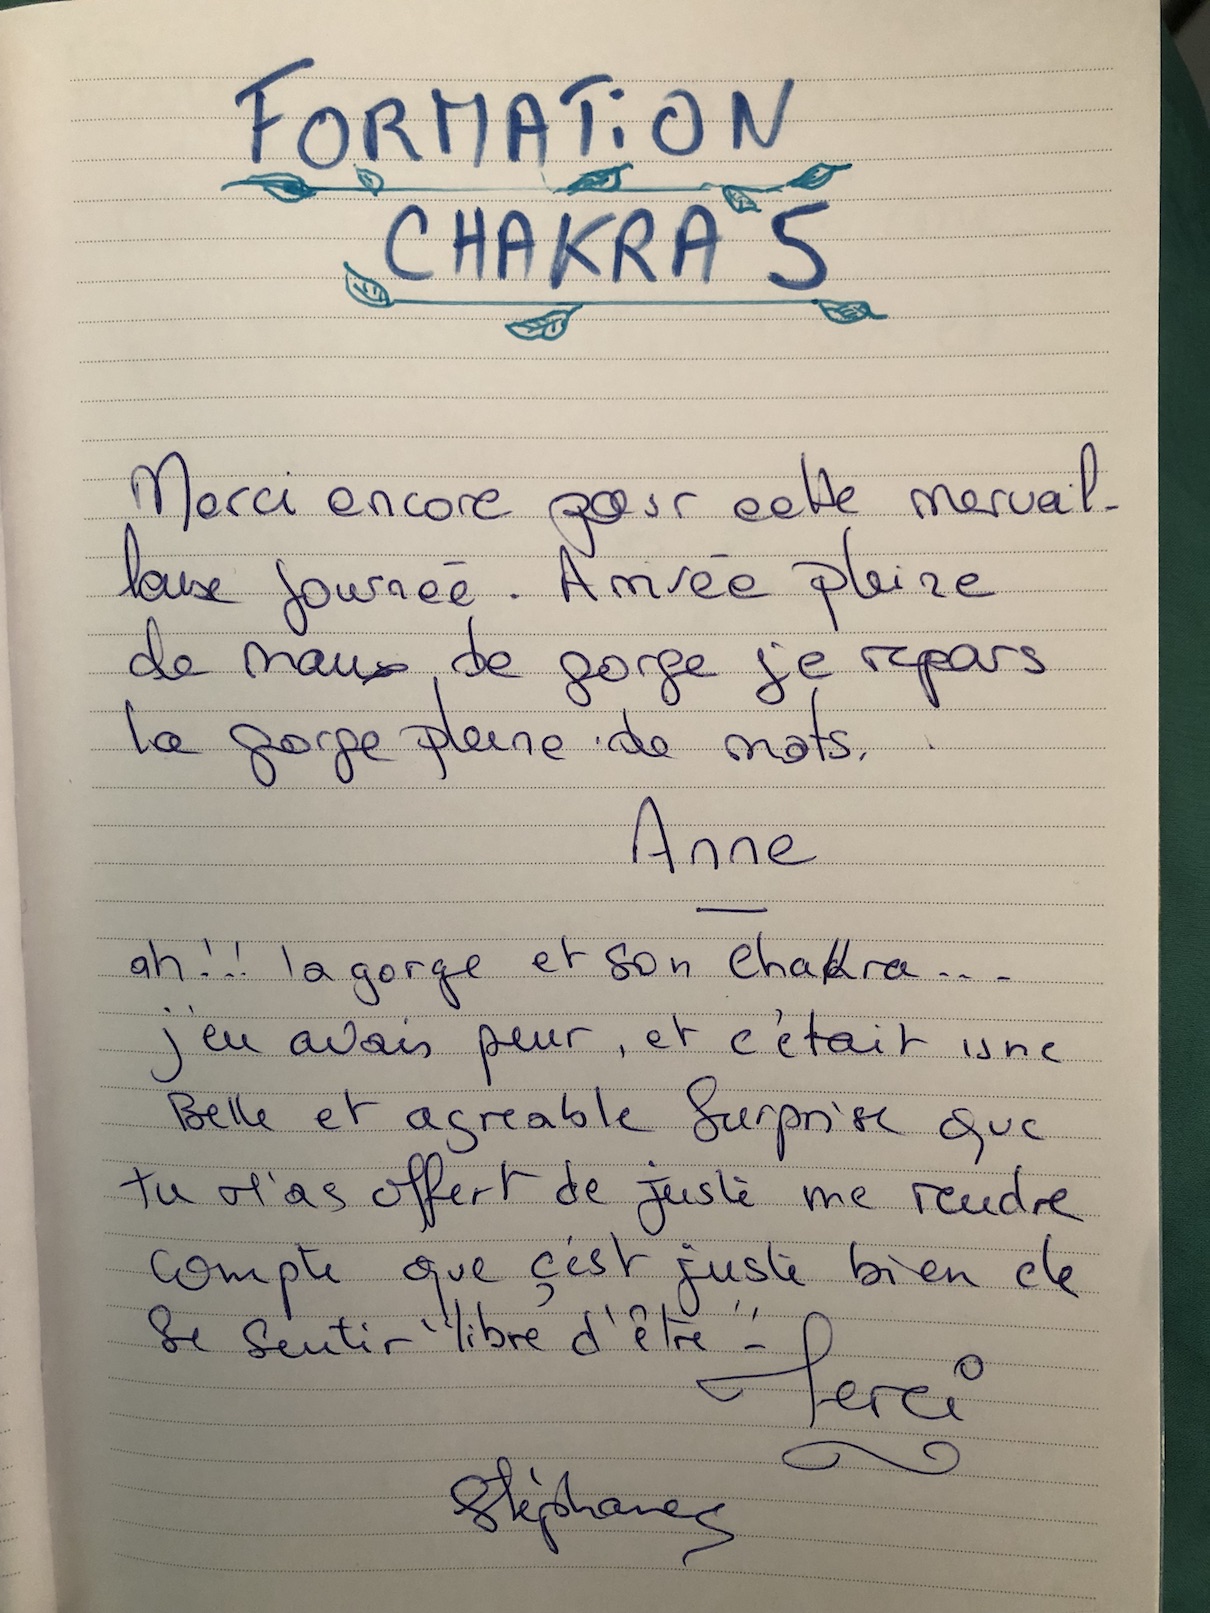 FORMATION
CHAKRA 5
Merci encore pour cette merveil-
leuse journée. Arrivée pleine
de maux de gorge je repars
la gorge pleine de mots.
Anne
ah!!! la gorge et son Chakra...
j'en avais peur, et c'était une
Belle et agreable Surprise que
tu m'as offert de juste me rendre
compte que c'est juste bien de
se sentir "libre d'être"
Merci